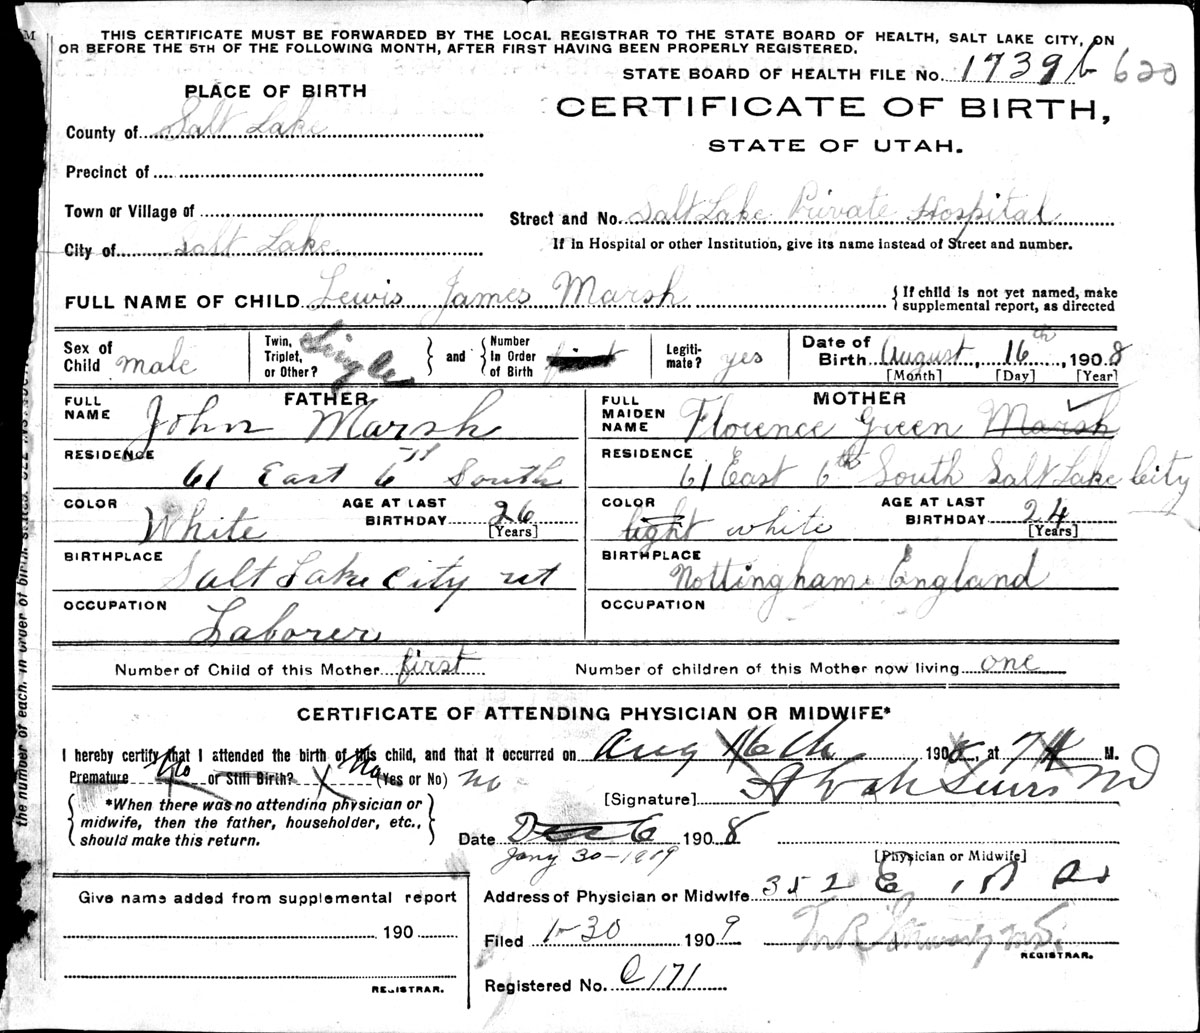 THIS CERTIFICATE MUST BE FORWARDED BY THE LOCAL REGISTRAR TO THE STATE BOARD OF HEALTH, SALT LAKE CITY, ON
OR BEFORE THE 5TH OF THE FOLLOWING MONTH, AFTER FIRST HAVING BEEN PROPERLY REGISTERED.
STATE BOARD OF HEALTH FILE No. 1739 b 620
PLACE OF BIRTH
CERTIFICATE OF BIRTH,
STATE OF UTAH.
County of Salt Lake
Precinct of
Town or Village of
Street and No. Salt Lake Private Hospital
City of Salt Lake
If in Hospital or other Institution, give its name instead of Street and number.
FULL NAME OF CHILD Lewis James Marsh
{If child is not yet named, make
supplemental report, as directed
Sex of Child male
Twin, Triplet, or Other? Single
and
Number In Order of Birth first
Legitimate? yes
Date of Birth August, 16th, 1908
[Month] [Day] [Year]
FATHER
FULL NAME John Marsh
MOTHER
FULL MAIDEN NAME Florence Green Marsh
RESIDENCE 61 East 6th South
RESIDENCE 61 East 6th South Salt Lake City
COLOR White
AGE AT LAST BIRTHDAY 26 [Years]
COLOR light white
AGE AT LAST BIRTHDAY 24 [Years]
BIRTHPLACE Salt Lake City ut
BIRTHPLACE Nottingham England
OCCUPATION Laborer
OCCUPATION
Number of Child of this Mother first
Number of children of this Mother now living one
CERTIFICATE OF ATTENDING PHYSICIAN OR MIDWIFE*
I hereby certify that I attended the birth of this child, and that it occurred on Aug 16th 1908, at 7 M.
Premature No or Still Birth? No (Yes or No) no
*When there was no attending physician or
midwife, then the father, householder, etc.,
should make this return.
[Signature] MD
Date Dec 6 1908
Jany 30-1909
[Physician or Midwife]
Address of Physician or Midwife 352 E
Give name added from supplemental report
190
REGISTRAR.
Filed 1-30 1909
REGISTRAR.
Registered No. C171
the number of each, in order of birth, stated.